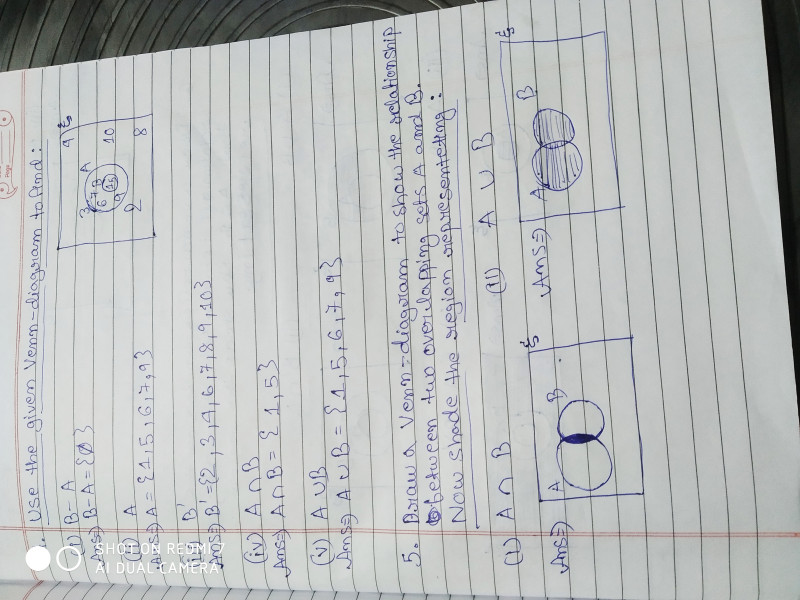 Use the given Venn-diagram to find:
(i) B-A
Ans⇒ B-A = {ø}
(ii) A
Ans⇒ A = {1,5,6,7,9}
(iii) B'
Ans⇒ B' = {2,3,4,6,7,8,9,10}
(iv) A ∩ B
Ans⇒ A ∩ B = {1,5}
(v) A ∪ B
Ans⇒ A ∪ B = {1,5,6,7,9}
4 ξ
3 A 10
7 B
6 1 5
9
2 8
5. Draw a Venn-diagram to show the relationship
between two overlapping sets A and B.
Now shade the region representing:
(i) A ∩ B (ii) A ∪ B
Ans⇒ A B ξ
Ans⇒ A B ξ
SHOT ON REDMI 7
AI DUAL CAMERA